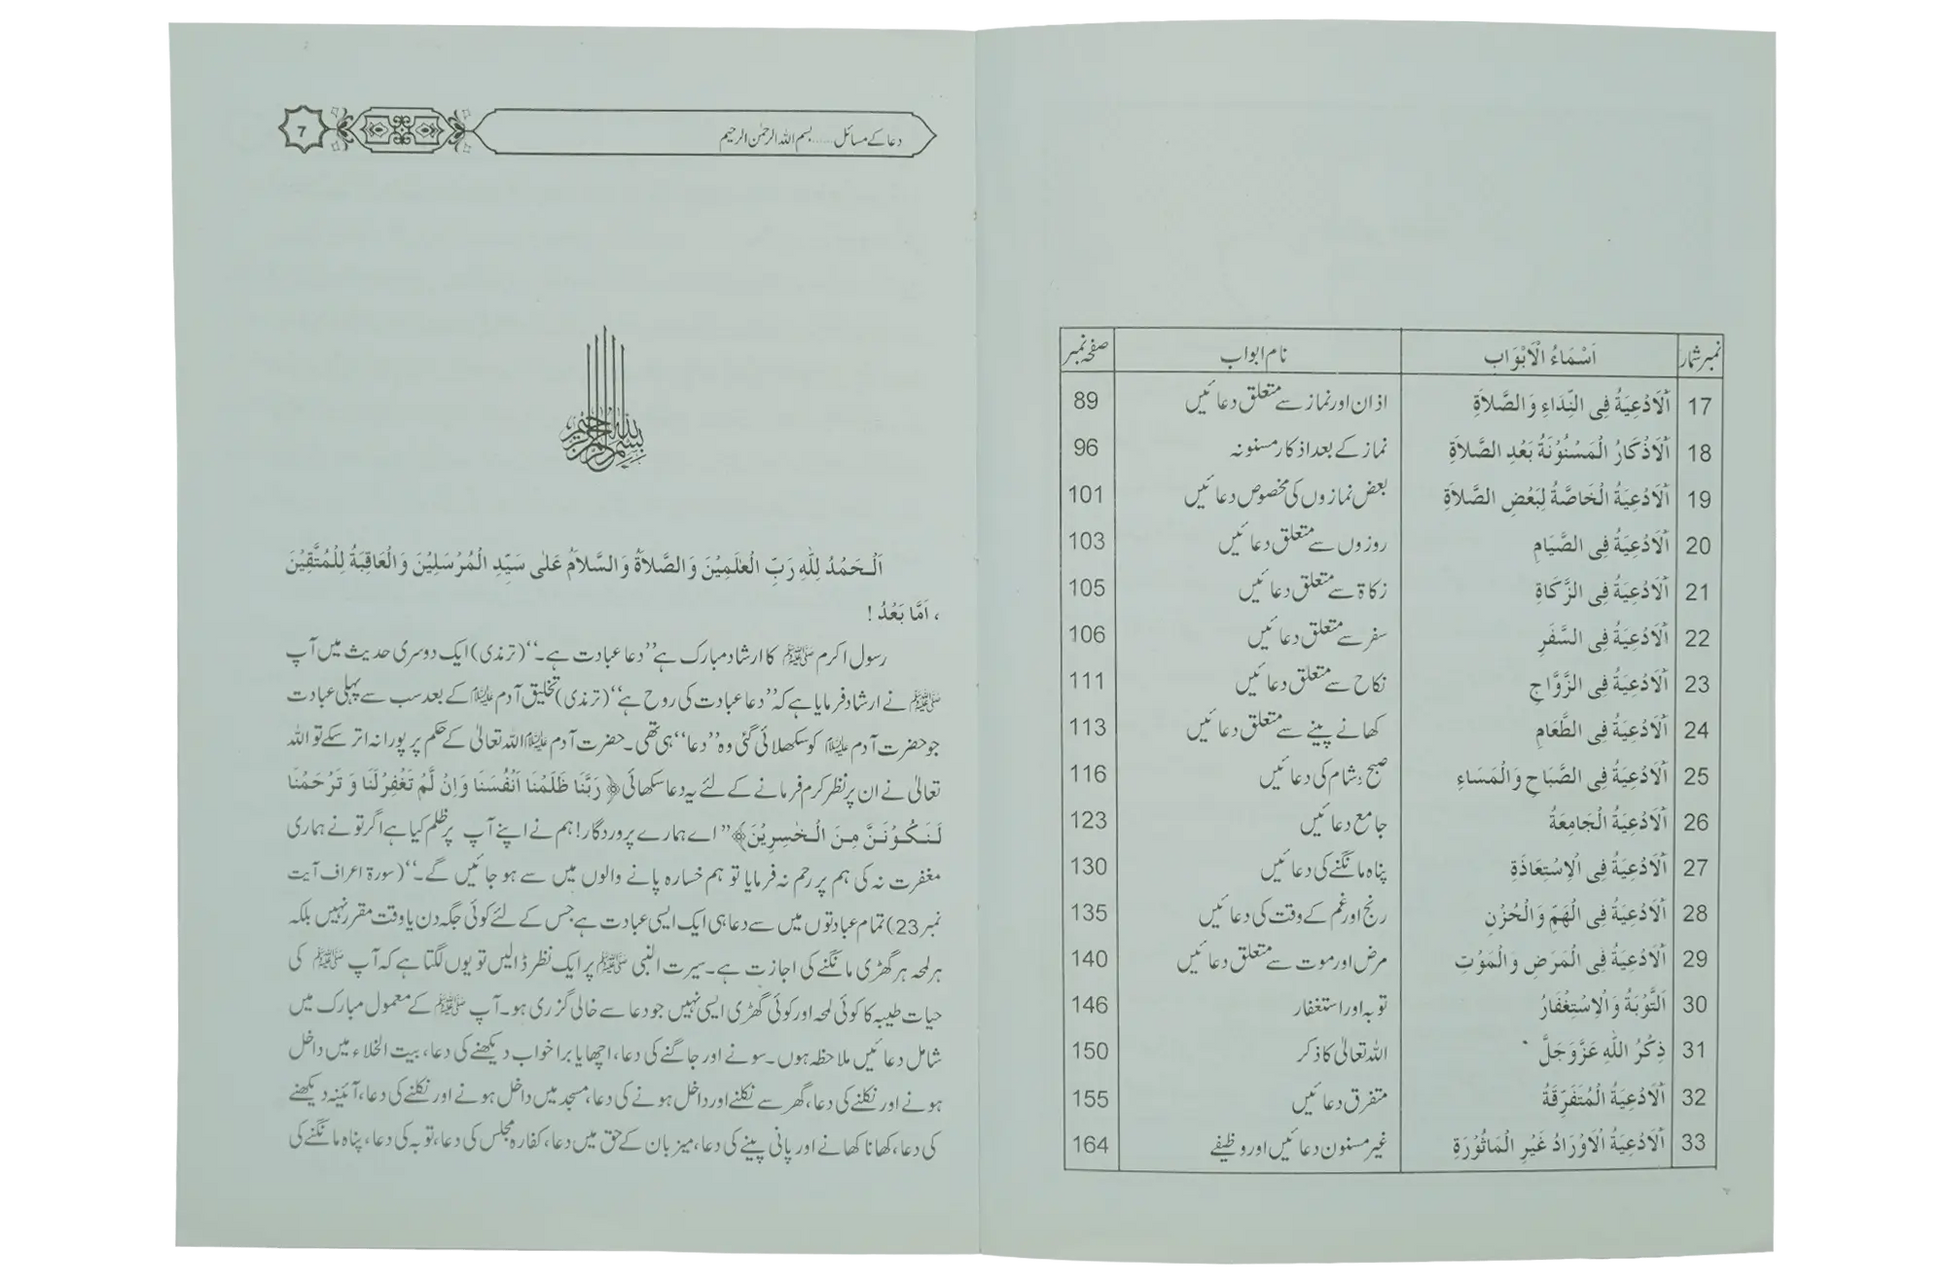 نمبر شمار | اَسْمَاءُ الْاَبْوَاب | نام ابواب | صفحہ نمبر
17 | اَلْاَدْعِيَةُ فِى النِّدَاءِ وَالصَّلاَةِ | اذان اور نماز سے متعلق دعائیں | 89
18 | اَلْاَذْكَارُ الْمَسْنُوْنَةُ بَعْدِ الصَّلاَةِ | نماز کے بعد اذکار مسنونہ | 96
19 | اَلْاَدْعِيَةُ الْخَاصَّةُ لِبَعْضِ الصَّلاَةِ | بعض نمازوں کی مخصوص دعائیں | 101
20 | اَلْاَدْعِيَةُ فِى الصِّيَامِ | روزوں سے متعلق دعائیں | 103
21 | اَلْاَدْعِيَةُ فِى الزَّكَاةِ | زکاۃ سے متعلق دعائیں | 105
22 | اَلْاَدْعِيَةُ فِى السَّفَرِ | سفر سے متعلق دعائیں | 106
23 | اَلْاَدْعِيَةُ فِى الزَّوَّاجِ | نکاح سے متعلق دعائیں | 111
24 | اَلْاَدْعِيَةُ فِى الطَّعَامِ | کھانے پینے سے متعلق دعائیں | 113
25 | اَلْاَدْعِيَةُ فِى الصَّبَاحِ وَالْمَسَاءِ | صبح و شام کی دعائیں | 116
26 | اَلْاَدْعِيَةُ الْجَامِعَةُ | جامع دعائیں | 123
27 | اَلْاَدْعِيَةُ فِى الْاِسْتِعَاذَةِ | پناہ مانگنے کی دعائیں | 130
28 | اَلْاَدْعِيَةُ فِى الْهَمِّ وَالْحُزْنِ | رنج اور غم کے وقت کی دعائیں | 135
29 | اَلْاَدْعِيَةُ فِى الْمَرَضِ وَالْمَوْتِ | مرض اور موت سے متعلق دعائیں | 140
30 | اَلتَّوْبَةُ وَالْاِسْتِغْفَارُ | توبہ اور استغفار | 146
31 | ذِكْرُ اللهِ عَزَّوَجَلَّ | اللہ تعالیٰ کا ذکر | 150
32 | اَلْاَدْعِيَةُ الْمُتَفَرِّقَةُ | متفرق دعائیں | 155
33 | اَلْاَدْعِيَةُ الْاَوْرَادُ غَيْرِ الْمَاثُوْرَةِ | غیر مسنون دعائیں اور وظیفے | 164
دعا کے مسائل ...... بسم اللہ الرحمٰن الرحیم
7
بسم الله الرحمن الرحيم
اَلْحَمْدُ لِلّٰهِ رَبِّ الْعٰلَمِيْنَ وَالصَّلاَةُ وَالسَّلاَمُ عَلٰى سَيِّدِ الْمُرْسَلِيْنَ وَالْعَاقِبَةُ لِلْمُتَّقِيْنَ
، اَمَّا بَعْدُ !
رسول اکرم ﷺ کا ارشاد مبارک ہے ’’دعا عبادت ہے۔‘‘ (ترمذی) ایک دوسری حدیث میں آپ
ﷺ نے ارشاد فرمایا ہے کہ ’’دعا عبادت کی روح ہے‘‘ (ترمذی) تخلیق آدم علیہ السلام کے بعد سب سے پہلی عبادت
جو حضرت آدم علیہ السلام کو سکھلائی گئی وہ ’’دعا‘‘ ہی تھی۔ حضرت آدم علیہ السلام اللہ تعالیٰ کے حکم پر پورا نہ اتر سکے تو اللہ
تعالیٰ نے ان پر نظر کرم فرمانے کے لئے یہ دعا سکھائی ﴿ رَبَّنَا ظَلَمْنَا اَنْفُسَنَا وَاِنْ لَّمْ تَغْفِرْلَنَا وَ تَرْحَمْنَا
لَنَكُوْنَنَّ مِنَ الْخٰسِرِيْنَ﴾ ’’اے ہمارے پروردگار! ہم نے اپنے آپ پر ظلم کیا ہے اگر تو نے ہماری
مغفرت نہ کی ہم پر رحم نہ فرمایا تو ہم خسارہ پانے والوں میں سے ہو جائیں گے۔‘‘ (سورۃ اعراف آیت
نمبر 23) تمام عبادتوں میں سے دعا ہی ایک ایسی عبادت ہے جس کے لئے کوئی جگہ دن یا وقت مقرر نہیں بلکہ
ہر لمحہ ہر گھڑی مانگنے کی اجازت ہے۔ سیرت النبی ﷺ پر ایک نظر ڈالیں تو یوں لگتا ہے کہ آپ ﷺ کی
حیات طیبہ کا کوئی لمحہ اور کوئی گھڑی ایسی نہیں جو دعا سے خالی گزری ہو۔ آپ ﷺ کے معمول مبارک میں
شامل دعائیں ملاحظہ ہوں۔ سونے اور جاگنے کی دعا، اچھا یا برا خواب دیکھنے کی دعا، بیت الخلاء میں داخل
ہونے اور نکلنے کی دعا، گھر سے نکلنے اور داخل ہونے کی دعا، مسجد میں داخل ہونے اور نکلنے کی دعا، آئینہ دیکھنے
کی دعا، کھانا کھانے اور پانی پینے کی دعا، میزبان کے حق میں دعا، کفارہ مجلس کی دعا، توبہ کی دعا، پناہ مانگنے کی